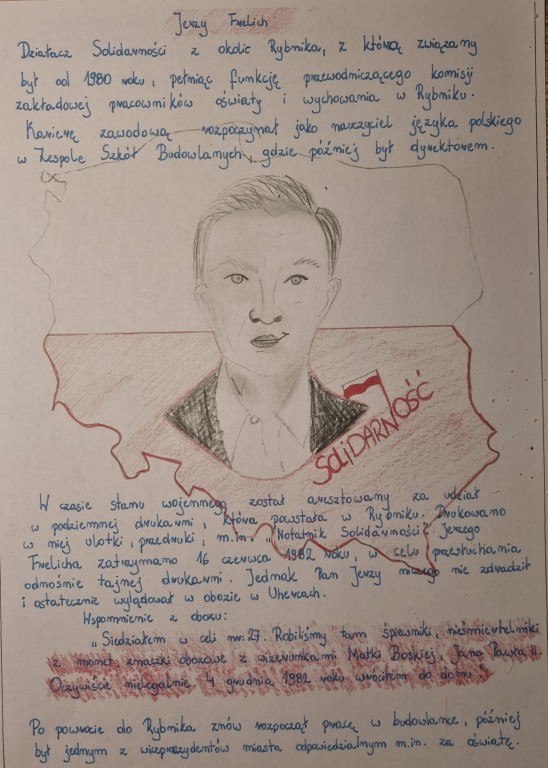 Jerzy Frelich
Działacz Solidarności z okolic Rybnika, z którą związany
był od 1980 roku, pełniąc funkcję przewodniczącego komisji
zakładowej pracowników oświaty i wychowania w Rybniku.
Karierę zawodową rozpoczynał jako nauczyciel języka polskiego
w Zespole Szkół Budowlanych, gdzie później był dyrektorem.
SOLIDARNOŚĆ
W czasie stanu wojennego został aresztowany za udział
w podziemnej drukarni, która powstała w Rybniku. Drukowano
w niej ulotki, przedruki, m.in. Notatnik Solidarności. Jerzego
Frelicha zatrzymano 16 czerwca 1982 roku, w celu przesłuchania
odnośnie tajnej drukarni. Jednak Pan Jerzy niczego nie zdradził
i ostatecznie wylądował w obozie w Uhercach.
Wspomnienie z obozu:
„Siedziałem w celi nr. 27. Robiliśmy tam śpiewniki, nieśmiertelniki
z monet, znaczki obozowe z wizerunkami Matki Boskiej, Jana Pawła II.
Oczywiście nielegalnie. 4 grudnia 1982 roku wróciłem do domu."
Po powrocie do Rybnika znów rozpoczął pracę w budowlance, później
był jednym z wiceprezydentów miasta odpowiedzialnym m.in. za oświatę.